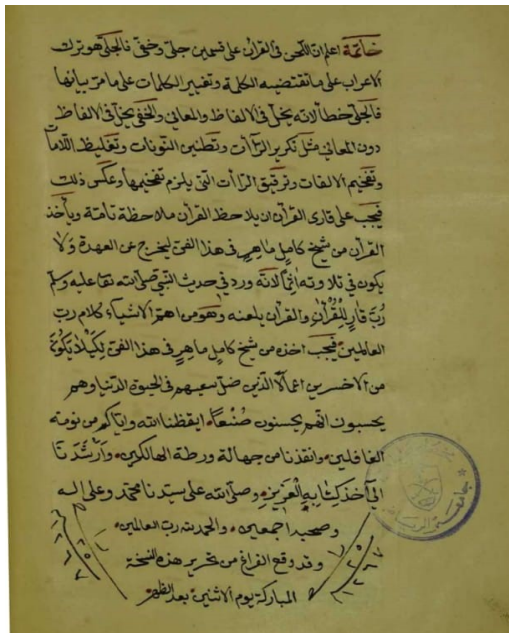 خاتمة اعلم ان اللحن فى القرآن على قسمين جلىّ وخفىّ فالجلىّ هو ترك
الاعراب على ما تقتضيه الكلمة وتغيير الكلمات على ما مرّ بيانها
فالجلىّ خطأ لانه يخلّ فى الالفاظ والمعانى والخفى يخلّ فى الالفاظ
دون المعانى مثل تكرير الرّاآت وتطنين النّونات وتغليظ اللّامات
وتفخيم الالفات وترقيق الرّاءات التى يلزم تفخيمها وعكس ذلك
فيجب على قارى القرآن ان يلاحظ القرآن ملاحظة تامّة ويأخذ
القرآن من شيخ كامل ماهر فى هذا الفنّ ليخرج عن العهدة ولا
يكون فى تلاوته اثمًا لانّه ورد فى حديث النّبى صلّى الله تعا عليه وسلم
رُبَّ قارٍ لِلْقُرْآنِ والقرآن يلعنه وهو من اهمّ الاشياء كلام رب
العالمين فيجب اخذه من شيخ كامل ماهر فى هذا الفنّ لكيلا يكونَ
من الاخسرين اعمالًا الّذين ضلّ سعيهم فى الحيوة الدّنيا وهم
يحسبون انّهم يحسنون صُنْعًا ايقظنا الله وايّاكم من نومة
الغافلين وانقذنا من جهالة ورطة الهالكين وارشدنا
الى آخذ كِتابِهِ الْعَزِيزِ وصلّى الله على سيّدنا محمّد وعلى اله
وصحبه اجمعين والحمد لله رب العالمين
وقد وقع الفراغ من تحرير هذه النّسخة
المباركة يوم الاثنين بعد الظهر